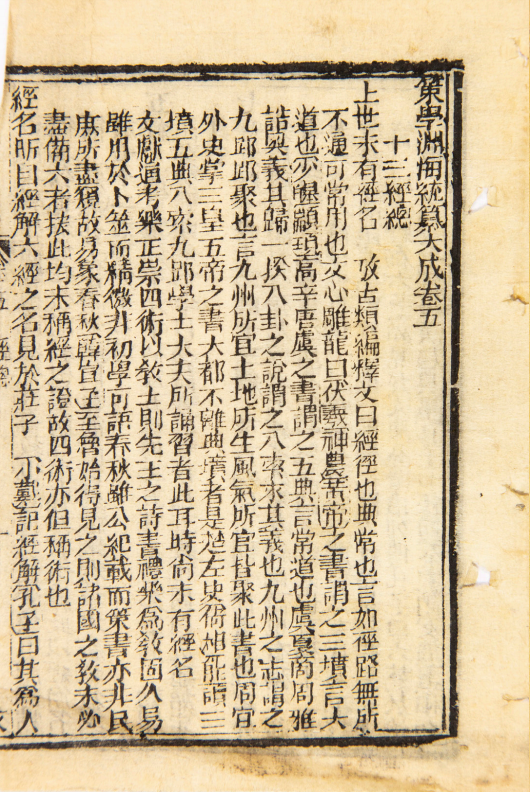 策學淵海統纂大成卷五
十三經總
上世未有經名 攷古類編釋文曰經徑也典常也言如徑路無所
不通可常用也文心雕龍曰伏羲神農黃帝之書謂之三墳言大
道也少皥顓頊高辛唐虞之書謂之五典言常道也虞夏商周雅
誥奧義其歸一揆八卦之說謂之八索求其義也九州之志謂之
九邱邱聚也言九州所宜土地所生風氣所宜皆聚此書也周官
外史掌三皇五帝之書大都不離典墳者是楚左史倚相能讀三
墳五典八索九邱學士大夫所誦習者此耳時尚未有經名
文獻通考樂正崇四術以敎士則先王之詩書禮樂爲敎固久易
雖用於卜筮而精微非初學可語春秋雖公紀載而策書亦非民
庶所盡窺故易象春秋韓宣子至魯始得見之則諸國之敎未必
盡備六者按此均未稱經之證故四術亦但稱術也
經名所自經解六經之名見於莊子 小戴記經解孔子曰其爲人